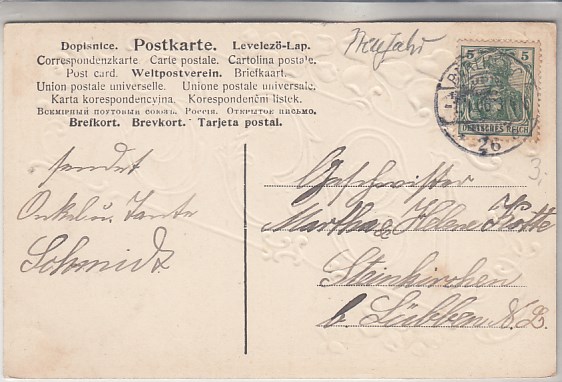 Dopisnice. Postkarte. Levelező-Lap.
Correspondenzkarte Carte postale. Cartolina postale.
Post card. Weltpostverein. Briefkaart.
Union postale universelle. Unione postale universale.
Karta korespondencyina. Korespondenční listek.
Всемирный почтовый союзъ. Россія. Открытое письмо.
Brefkort. Brevkort. Tarjeta postal.
Neujahr
5 5
DEUTSCHES REICH
26
3.-
sendet
Onkel u. Tante
Schmidt
Geschwister
Martha & Helene
Steinkirchen
b. Lübben N. L.